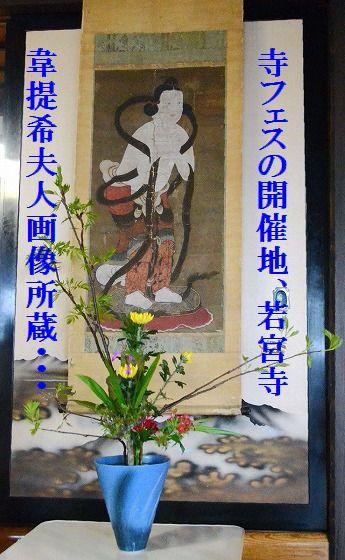 寺フェスの開催地、若宮寺
韋提希夫人画像所蔵・・・